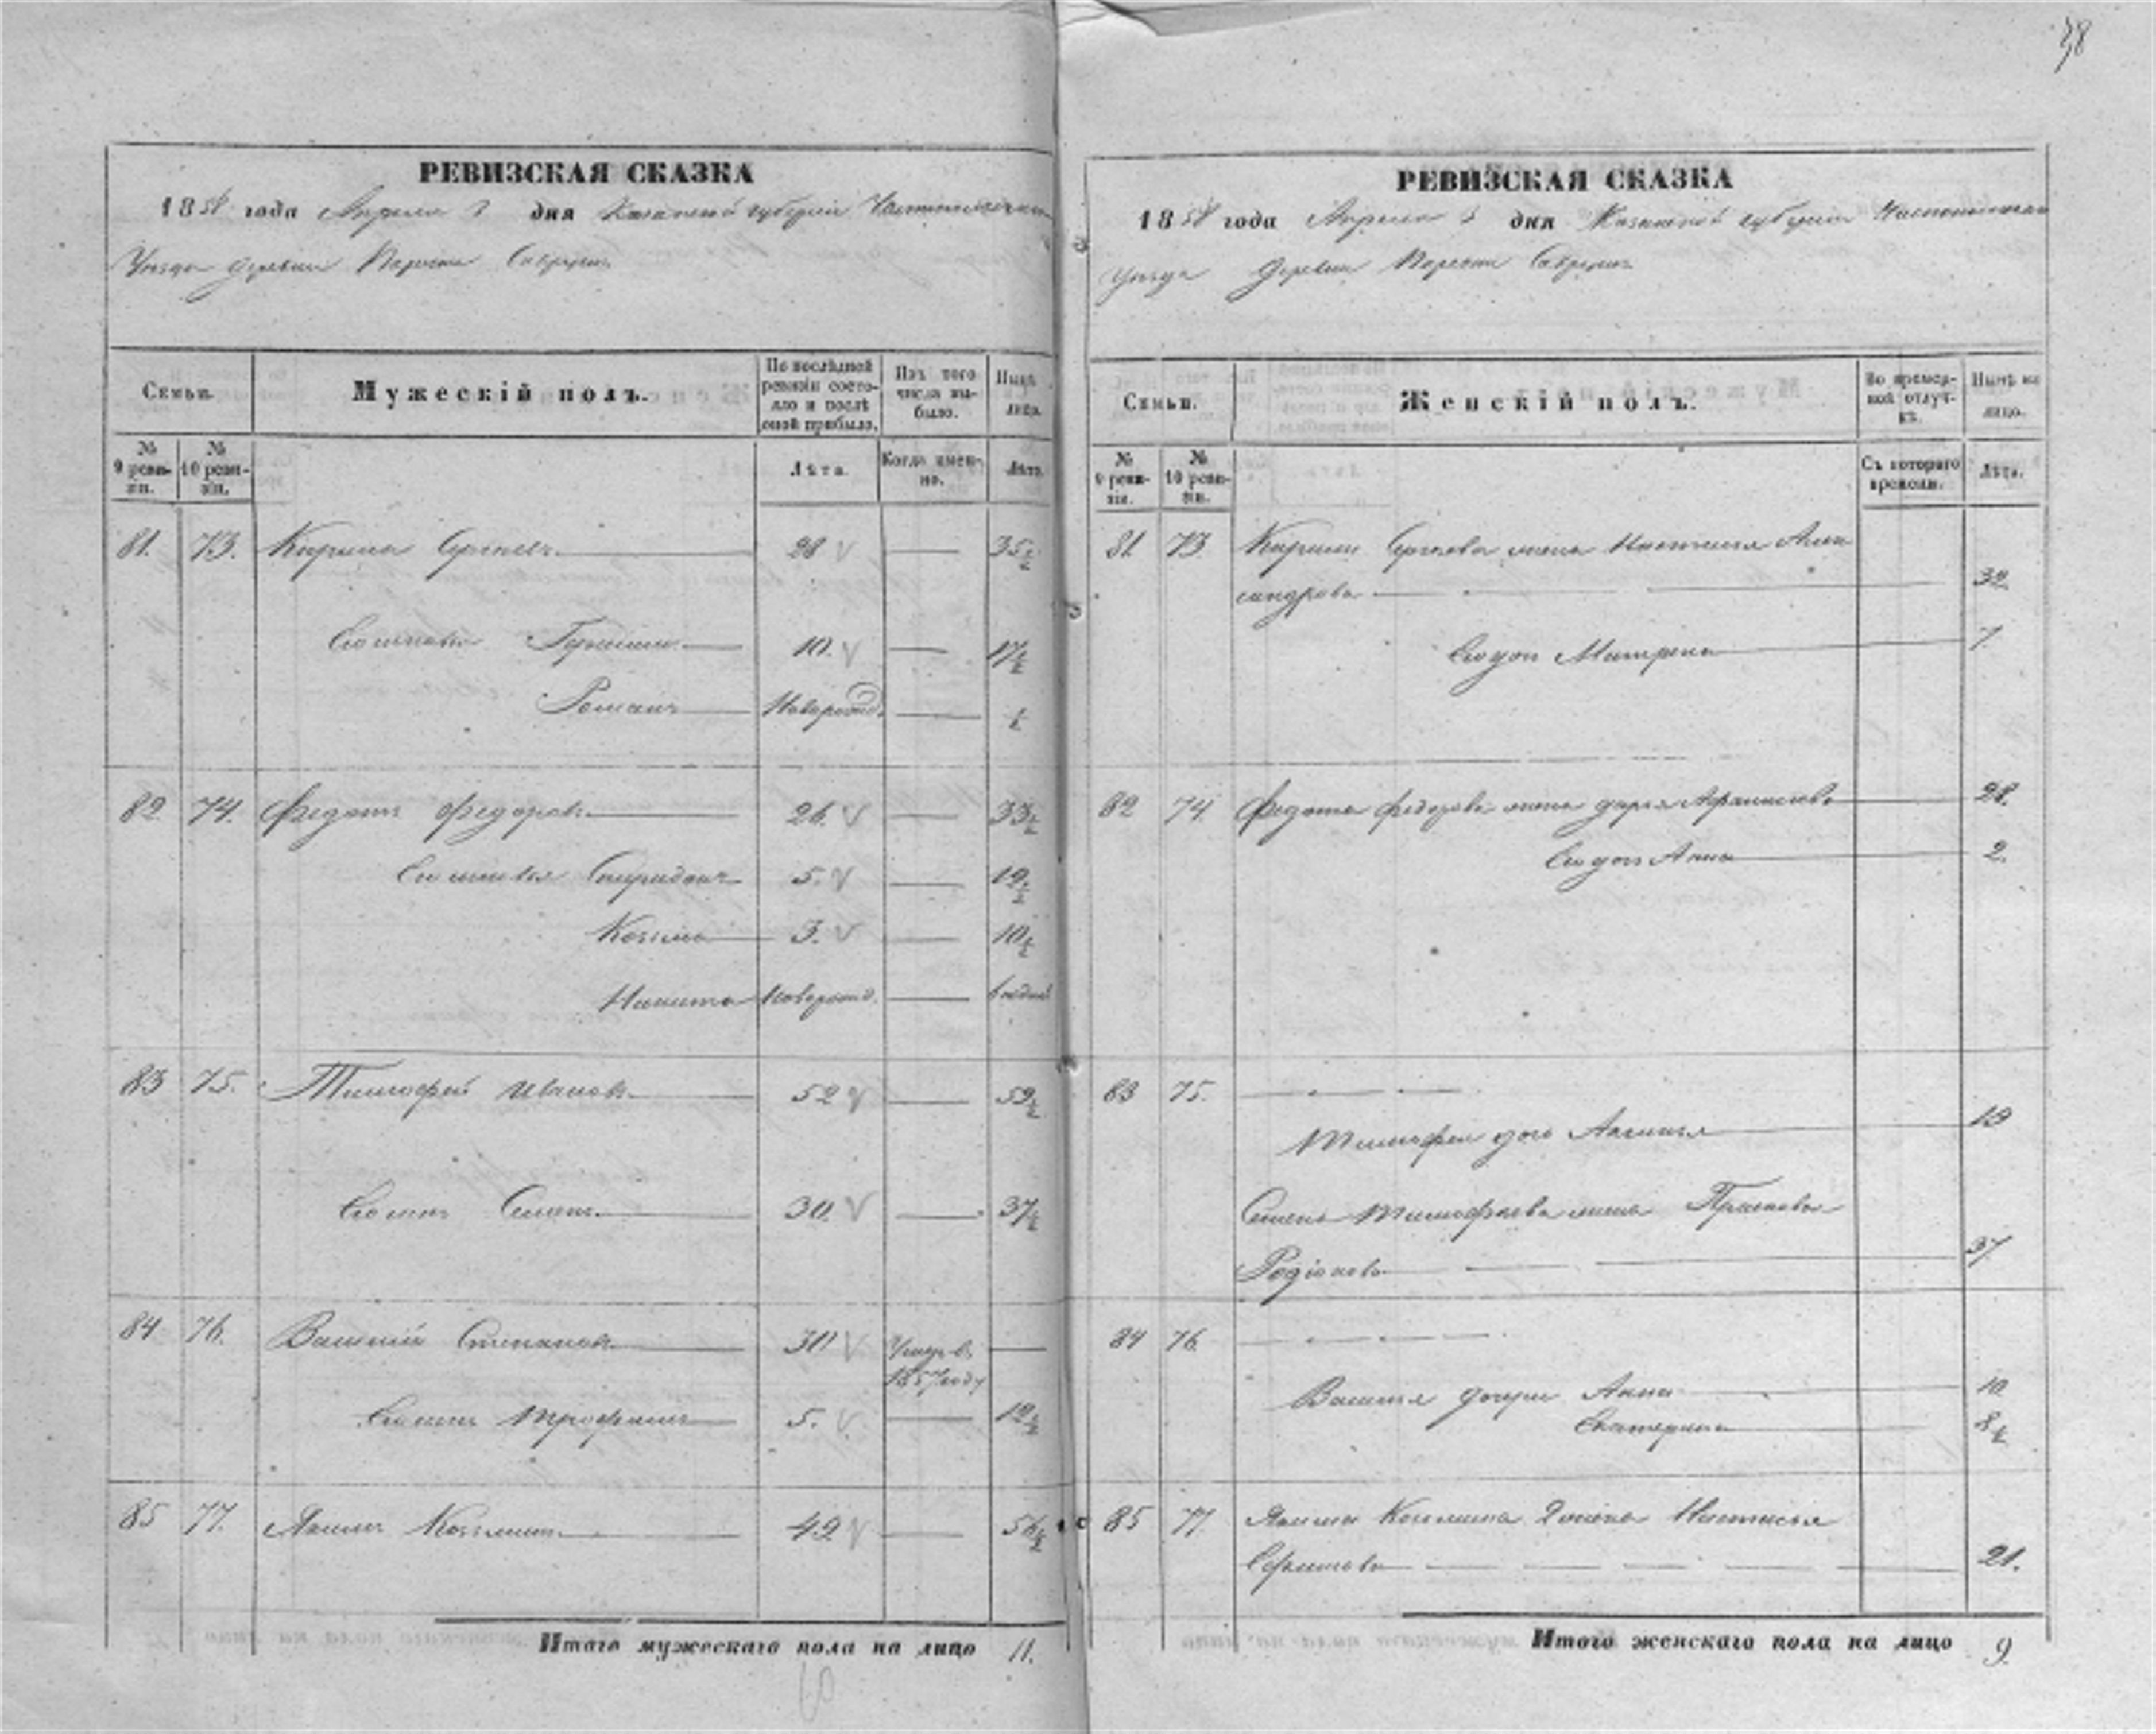 38
РЕВИЗСКАЯ СКАЗКА
1858 года Апреля 3 дня Казанской губернии Чистопольскаго
Уезда деревни
Семьи.
Мужескій полъ.
По послѣдней ревизіи состояло и послѣ оной прибыло.
Изъ того числа выбыло.
Нынѣ на лицо.
№ 9 ревизіи.
№ 10 ревизіи.
Лѣта.
Когда именно.
Лѣта.
81. 73. Кирила Сергеевъ 28 35
Сыновья 10. 17
Романъ Новорожд.
82 74. Федотъ Федоровъ 26. 33
Сыновья Спиридонъ 5. 12
Козьма 3. 10
Никита Новорожд.
83 75. Тимофей Ивановъ 52 59
Сынъ Семенъ 30. 37
84 76. Василий Степановъ 30 Умеръ в 1857 году
Сынъ Трофимъ 5. 12
85 77. Якимъ Козьминъ 49 56
Итого мужескаго пола на лицо 11.
РЕВИЗСКАЯ СКАЗКА
1858 года Апреля 3 дня Казанской губернии Чистопольскаго
уезда Деревни
Семьи.
Женскій полъ.
Во временной отлучкѣ.
Нынѣ на лицо.
№ 9 ревизіи.
№ 10 ревизіи.
Съ котораго времени.
Лѣта.
81. 73 Кирилы Сергеева жена Настасья Алек
сандрова 32
Матрена 7
82 74. Федота Федорова жена Дарья Афанасьева 28.
Анна 2.
83 75.
Тимофея дочь 19
Семена Тимофеева жена Прасковья
Родіонова 37
84 76.
Василья дочери Анна 10
Екатерина 8
85 77. Якима Козьмина 2 жена Настасья
Ефимова 21.
Итого женскаго пола на лицо 9.